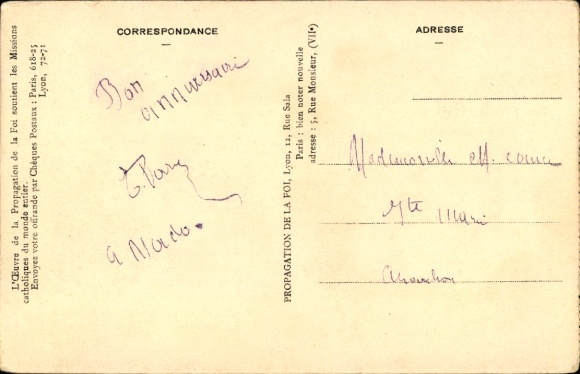 L'Œuvre de la Propagation de la Foi soutient les Missions
catholiques du monde entier.
Envoyez votre offrande par Chèques Postaux : Paris, 618-25
Lyon, 72-71
CORRESPONDANCE
Bon
anniversaire
a Mado
PROPAGATION DE LA FOI, Lyon, 12, Rue Sala
Paris : bien noter nouvelle
adresse : 5, Rue Monsieur, (VIIe)
ADRESSE
Mademoiselle M.
Ste Marie